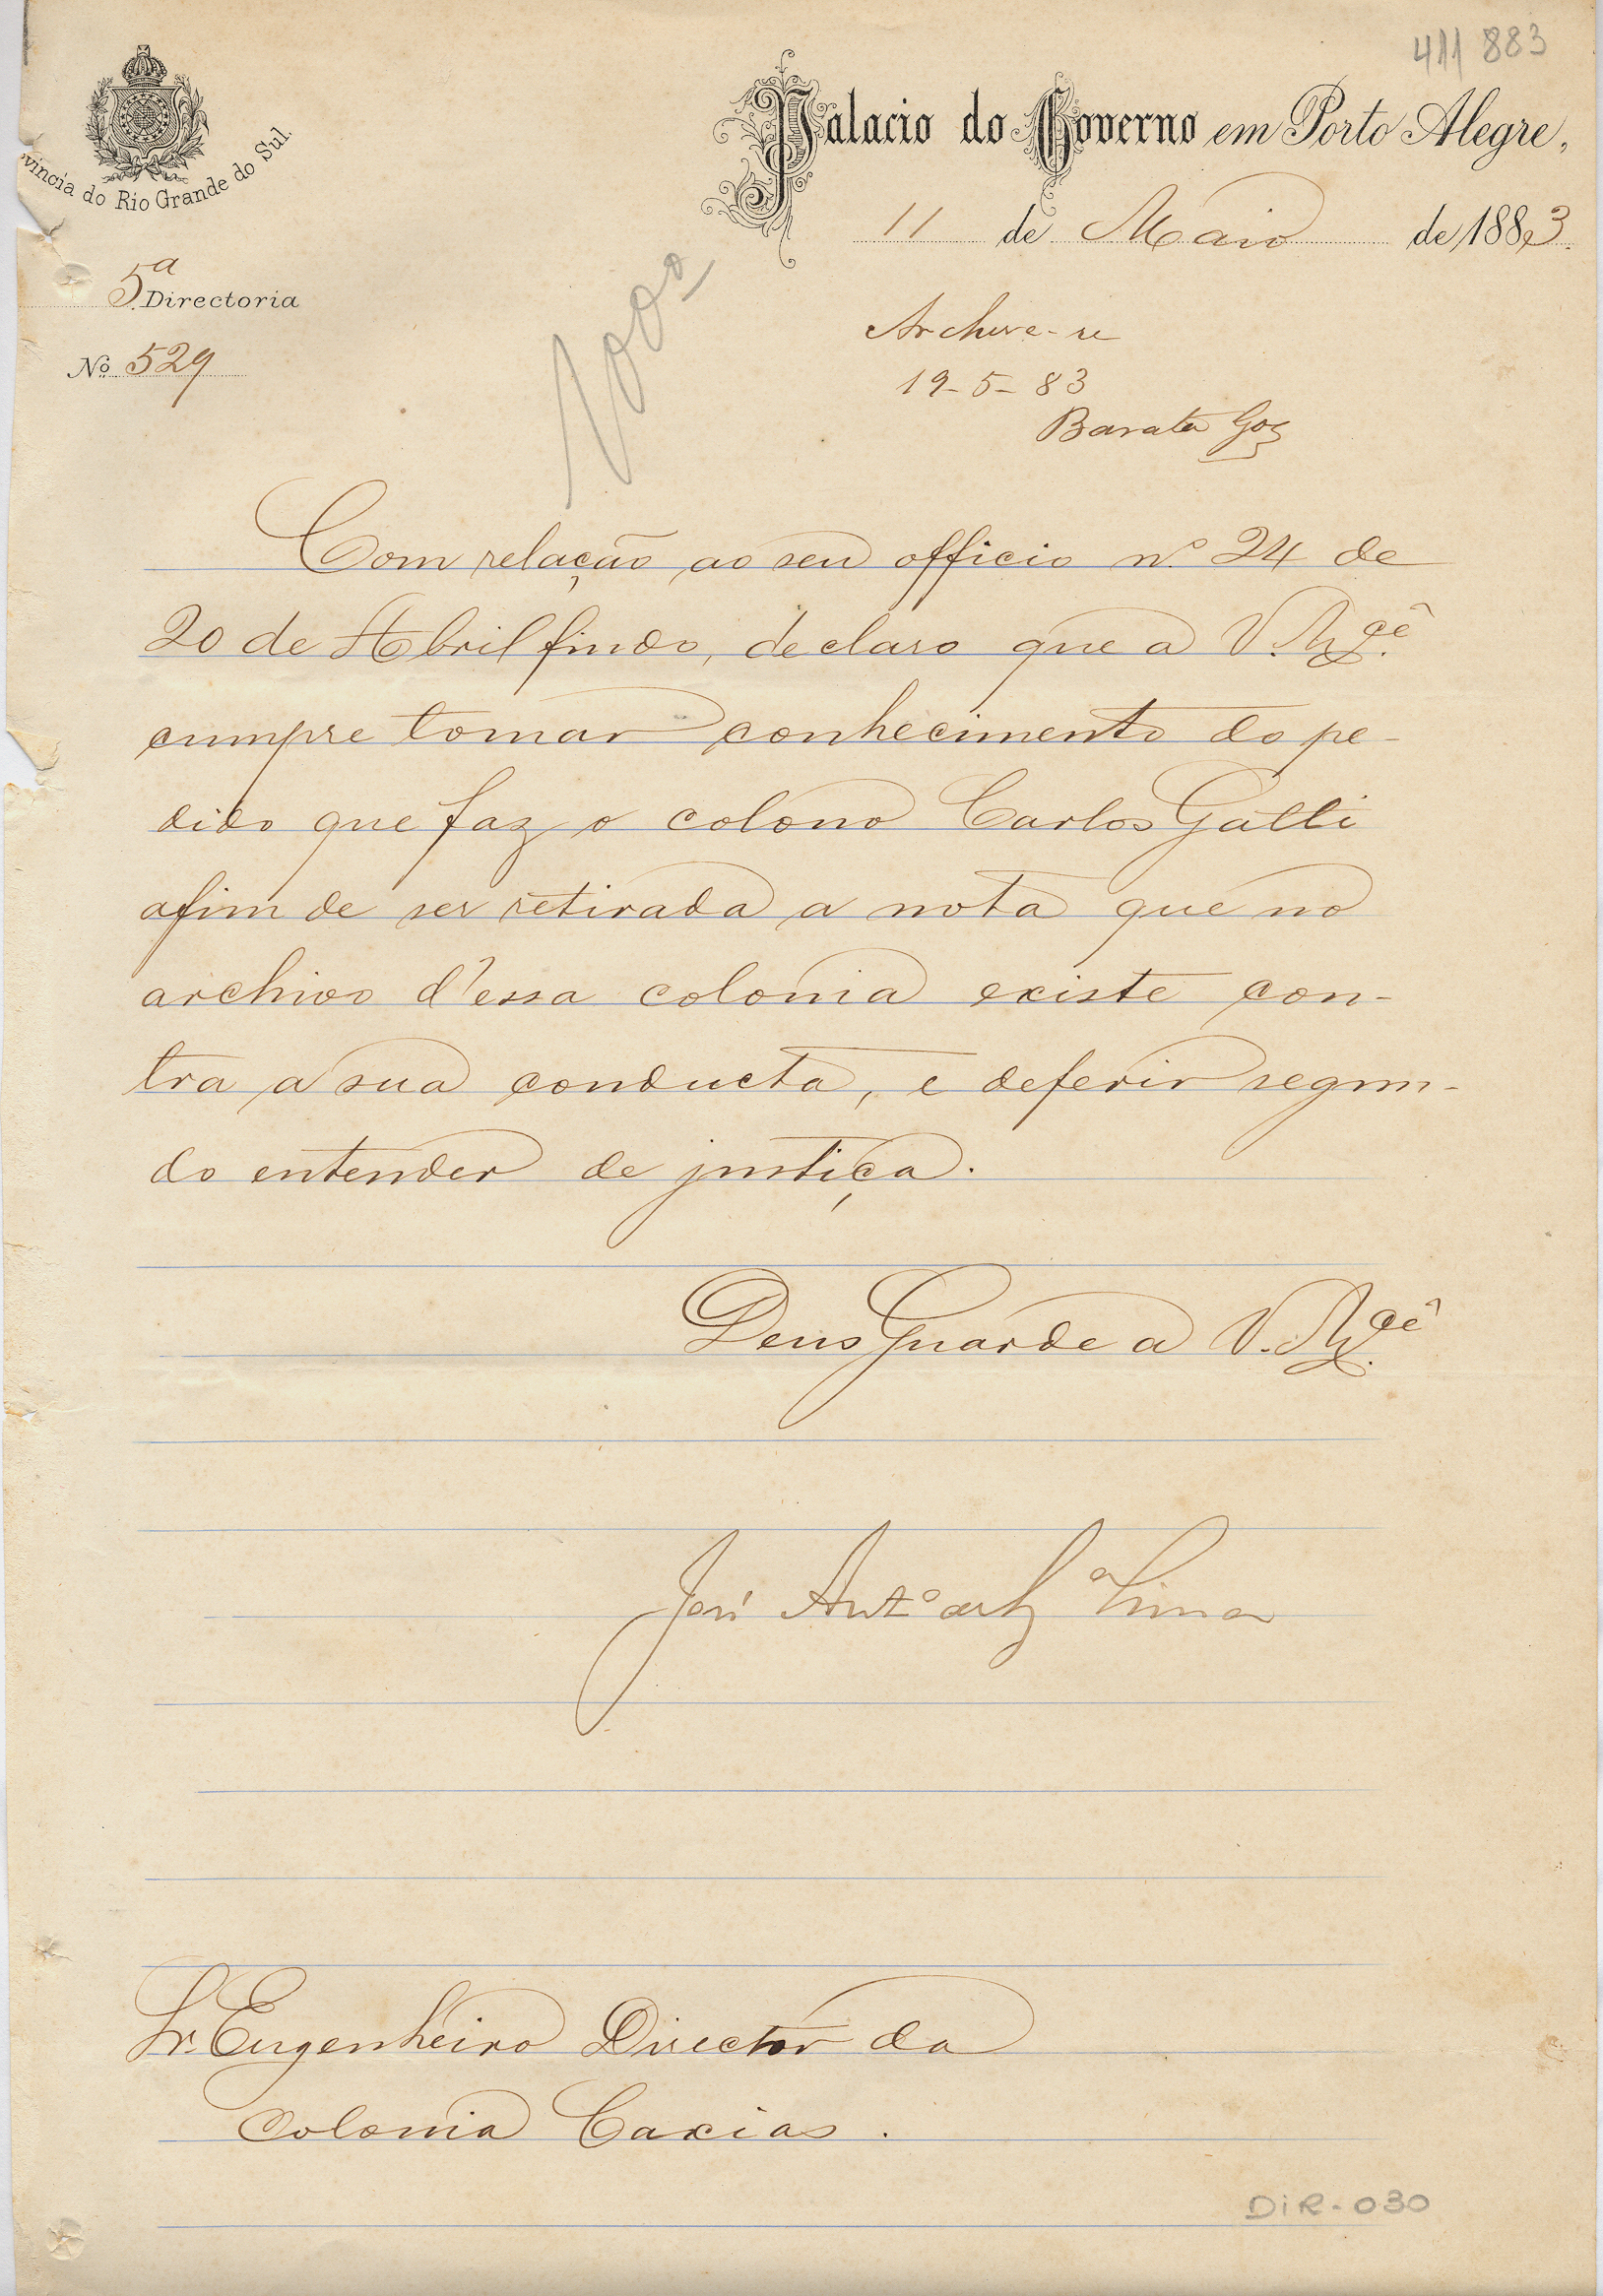 411 883
Palacio do Governo em Porto Alegre,
11 de Maio de 1883.
vincia do Rio Grande do Sul.
5ª Directoria
Nº 529
Archive-se
19-5-83
Barata Goz
Com relação ao seu officio nº 24 de
20 de Abril findo, declaro que a V. Mcê.
cumpre tomar conhecimento do pe-
dido que faz o colono Carlos Gatti
afim de ser retirada a nota que no
archivo d'essa colonia existe con-
tra a sua conducta, e deferir segun-
do entender de justiça.
Deus Guarde a V. Mcê.
José Antº Lima
Sr. Engenheiro Director da
Colonia Caxias.
DIR-030